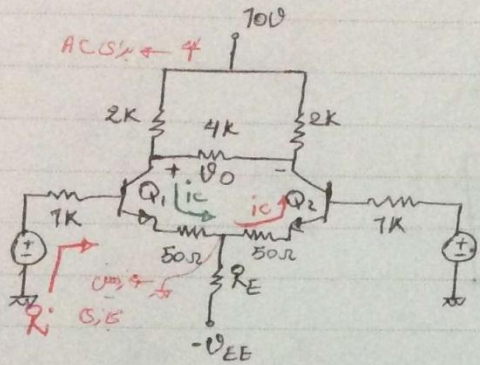 10v
AC
2K
4K
2K
+ v0 -
Q1
ic
ic
Q2
1K
1K
50Ω
50Ω
Ri
RE
-vEE